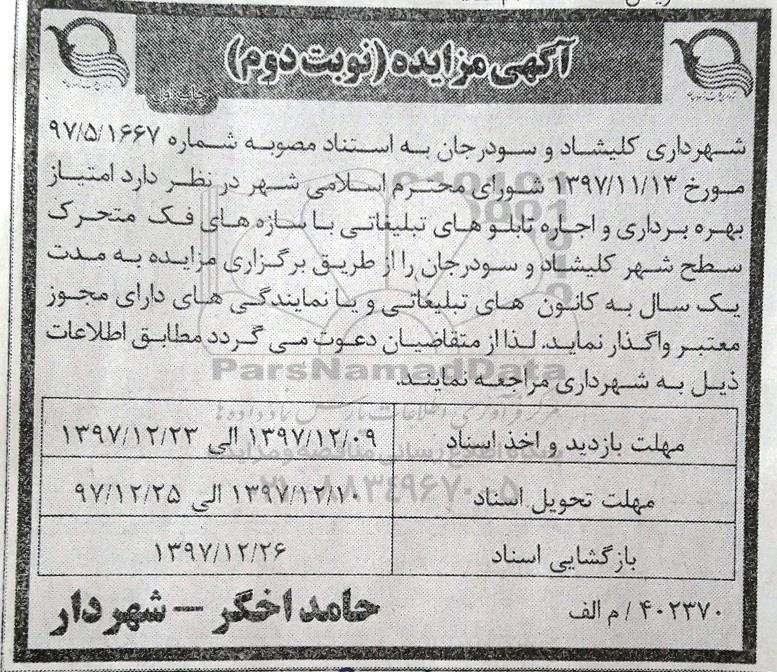 آگهی مزایده (نوبت دوم)
شهرداری کلیشاد و سودرجان به استناد مصوبه شماره ۹۷/۵/۱۶۶۷
مورخ ۱۳۹۷/۱۱/۱۳ شورای محترم اسلامی شهر در نظر دارد امتیاز
بهره برداری و اجاره تابلو های تبلیغاتی با سازه های فک متحرک
سطح شهر کلیشاد و سودرجان را از طریق برگزاری مزایده به مدت
یک سال به کانون های تبلیغاتی و یا نمایندگی های دارای مجوز
معتبر واگذار نماید. لذا از متقاضیان دعوت می گردد مطابق اطلاعات
ذیل به شهرداری مراجعه نمایند.
ParsNamadData
مهلت بازدید و اخذ اسناد ۱۳۹۷/۱۲/۰۹ الی ۱۳۹۷/۱۲/۲۳
مهلت تحویل اسناد ۱۳۹۷/۱۲/۱۰ الی ۹۷/۱۲/۲۵
بازگشایی اسناد ۱۳۹۷/۱۲/۲۶
۴۰۲۳۷۰ / م الف
حامد اخگر – شهردار